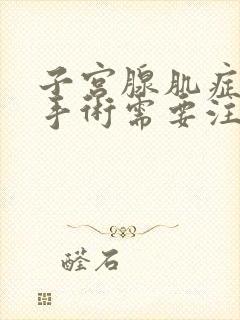 子宫腺肌症
手術需要注
醛石